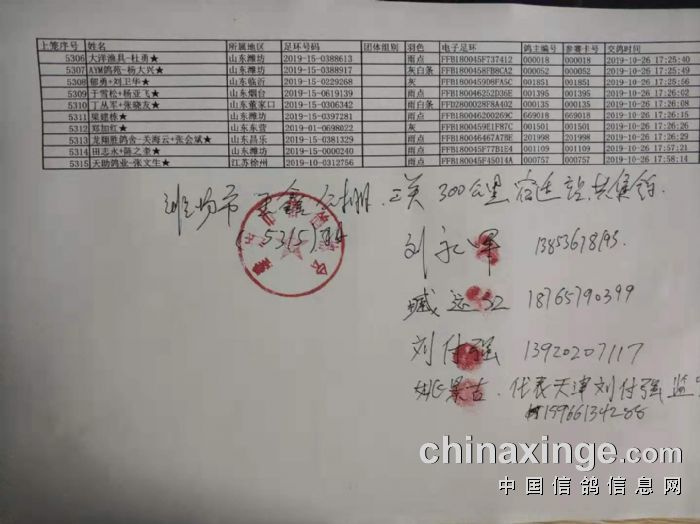 上笼序号 姓名 所属地区 足环号码 团体组别 羽色 电子足环 鸽主编号 参赛卡号 交鸽时间
5306 大洋渔具-杜勇★ 山东潍坊 2019-15-0388613 雨点 FFB180045F737412 000018 000018 2019-10-26 17:25:40
5307 AYM鸽苑-杨大兴★ 山东潍坊 2019-15-0388917 灰白条 FFB1800458FB8CA2 000052 000052 2019-10-26 17:25:49
5308 郁勇+刘卫华★ 山东临沂 2019-15-0229268 灰 FFB18004590BFA5C 001851 001851 2019-10-26 17:25:56
5309 于雪松+杨亚飞★ 山东烟台 2019-15-0619139 雨点 FFB180046252D36E 001395 001395 2019-10-26 17:26:02
5310 丁丛军+张晓友★ 山东董家口 2019-15-0306342 雨白条 FFD2800028F8A402 000135 000135 2019-10-26 17:26:08
5311 梁建栋★ 山东潍坊 2019-15-0397281 雨点 FFB180046200269C 669018 669018 2019-10-26 17:26:15
5312 郑加红★ 山东东营 2019-01-0698022 灰 FFB1800459E1F87C 001501 001501 2019-10-26 17:26:21
5313 龙翔胜鸽舍-关海云+张会斌★ 山东昌乐 2019-15-0381329 雨点 FFB18004646 7A78E 201998 201998 2019-10-26 17:26:29
5314 田志永+陈之奎★ 山东潍坊 2019-15-0000240 雨点 FFB180045F77B1E4 001109 001109 2019-10-26 17:56:51
5315 天助鸽业-张文生★ 江苏徐州 2019-10-0312756 雨点 FFB180045F45014A 000757 000757 2019-10-26 17:58:14
潍坊市 鑫 公棚.二关 300公里 宿迁站.共集鸽
(5315)羽
刘永军 13853678193.
臧远 18765790399
刘付强 13920207117
姚景吉.代表天津刘付强监
15966134288
chinaxinge.com
中国信鸽信息网